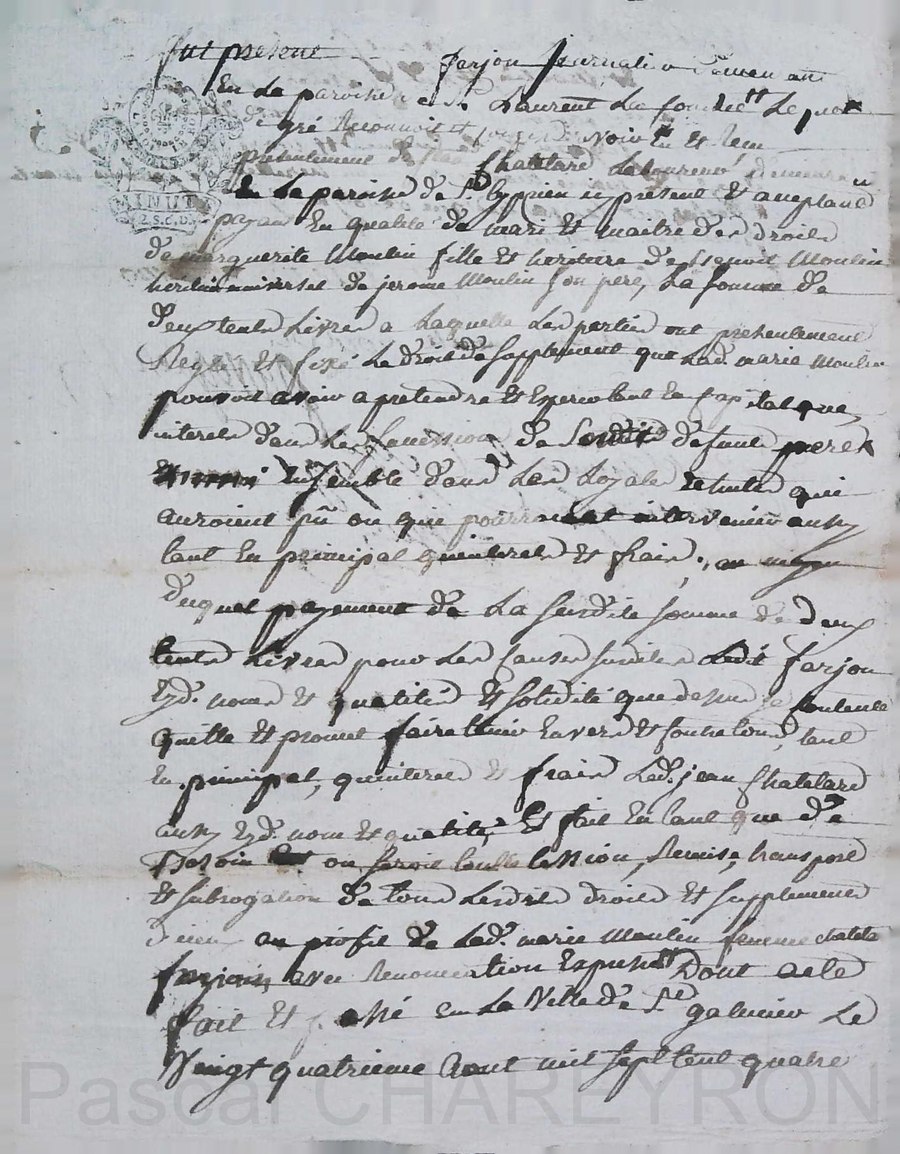 fut present farjon journalier demeurant
En La paroisse de St. Laurent La
gré Reconnoit
presentement de Chatelard Laboureur demeurant
En La paroisse de St Cyprien icy present et acceptant
payant En qualité de mari et maitre des droits
de marguerite Moulin fille et heritiere de Benoit Moulin
heritier universel de jerome Moulin son pere, La somme de
deux cents Livres a Laquelle Les parties ont presentement
Reglé et fixé Le droit de supplement que Lad. marie Moulin
pouvoit avoir a pretendre et Esperer tant En Capital que
interets dans La succession de defunt pere
Ensemble dans Les Loyales echutes qui
auroient pû ou que pourroient intervenir
tant En principal qu'interets et frais, au moyen
duquel payement de La susdite somme de deux
cents Livres pour Les causes susdites Ledit farjon
Esd. noms et qualités Et solidité que dessus se contente
quitte Et promet faire tenir Envers et contre tous, tant
En principal, qu'interets et frais Led. jean Chatelard
Esd. noms et qualités, Et fait En tant que de
Besoin ou seroit toutte cession, Remise, transport
et subrogation de tous Lesdits droits et supplements
au profit de Lad. marie Moulin femme chatela
farjon, avec Renonciation Dont acte
fait et passé En La Ville de St galmier Le
Vingt quatrieme Aout mil sept cent quatre
MINUT
2. S. 6. D.
Pascal CHAREYRON